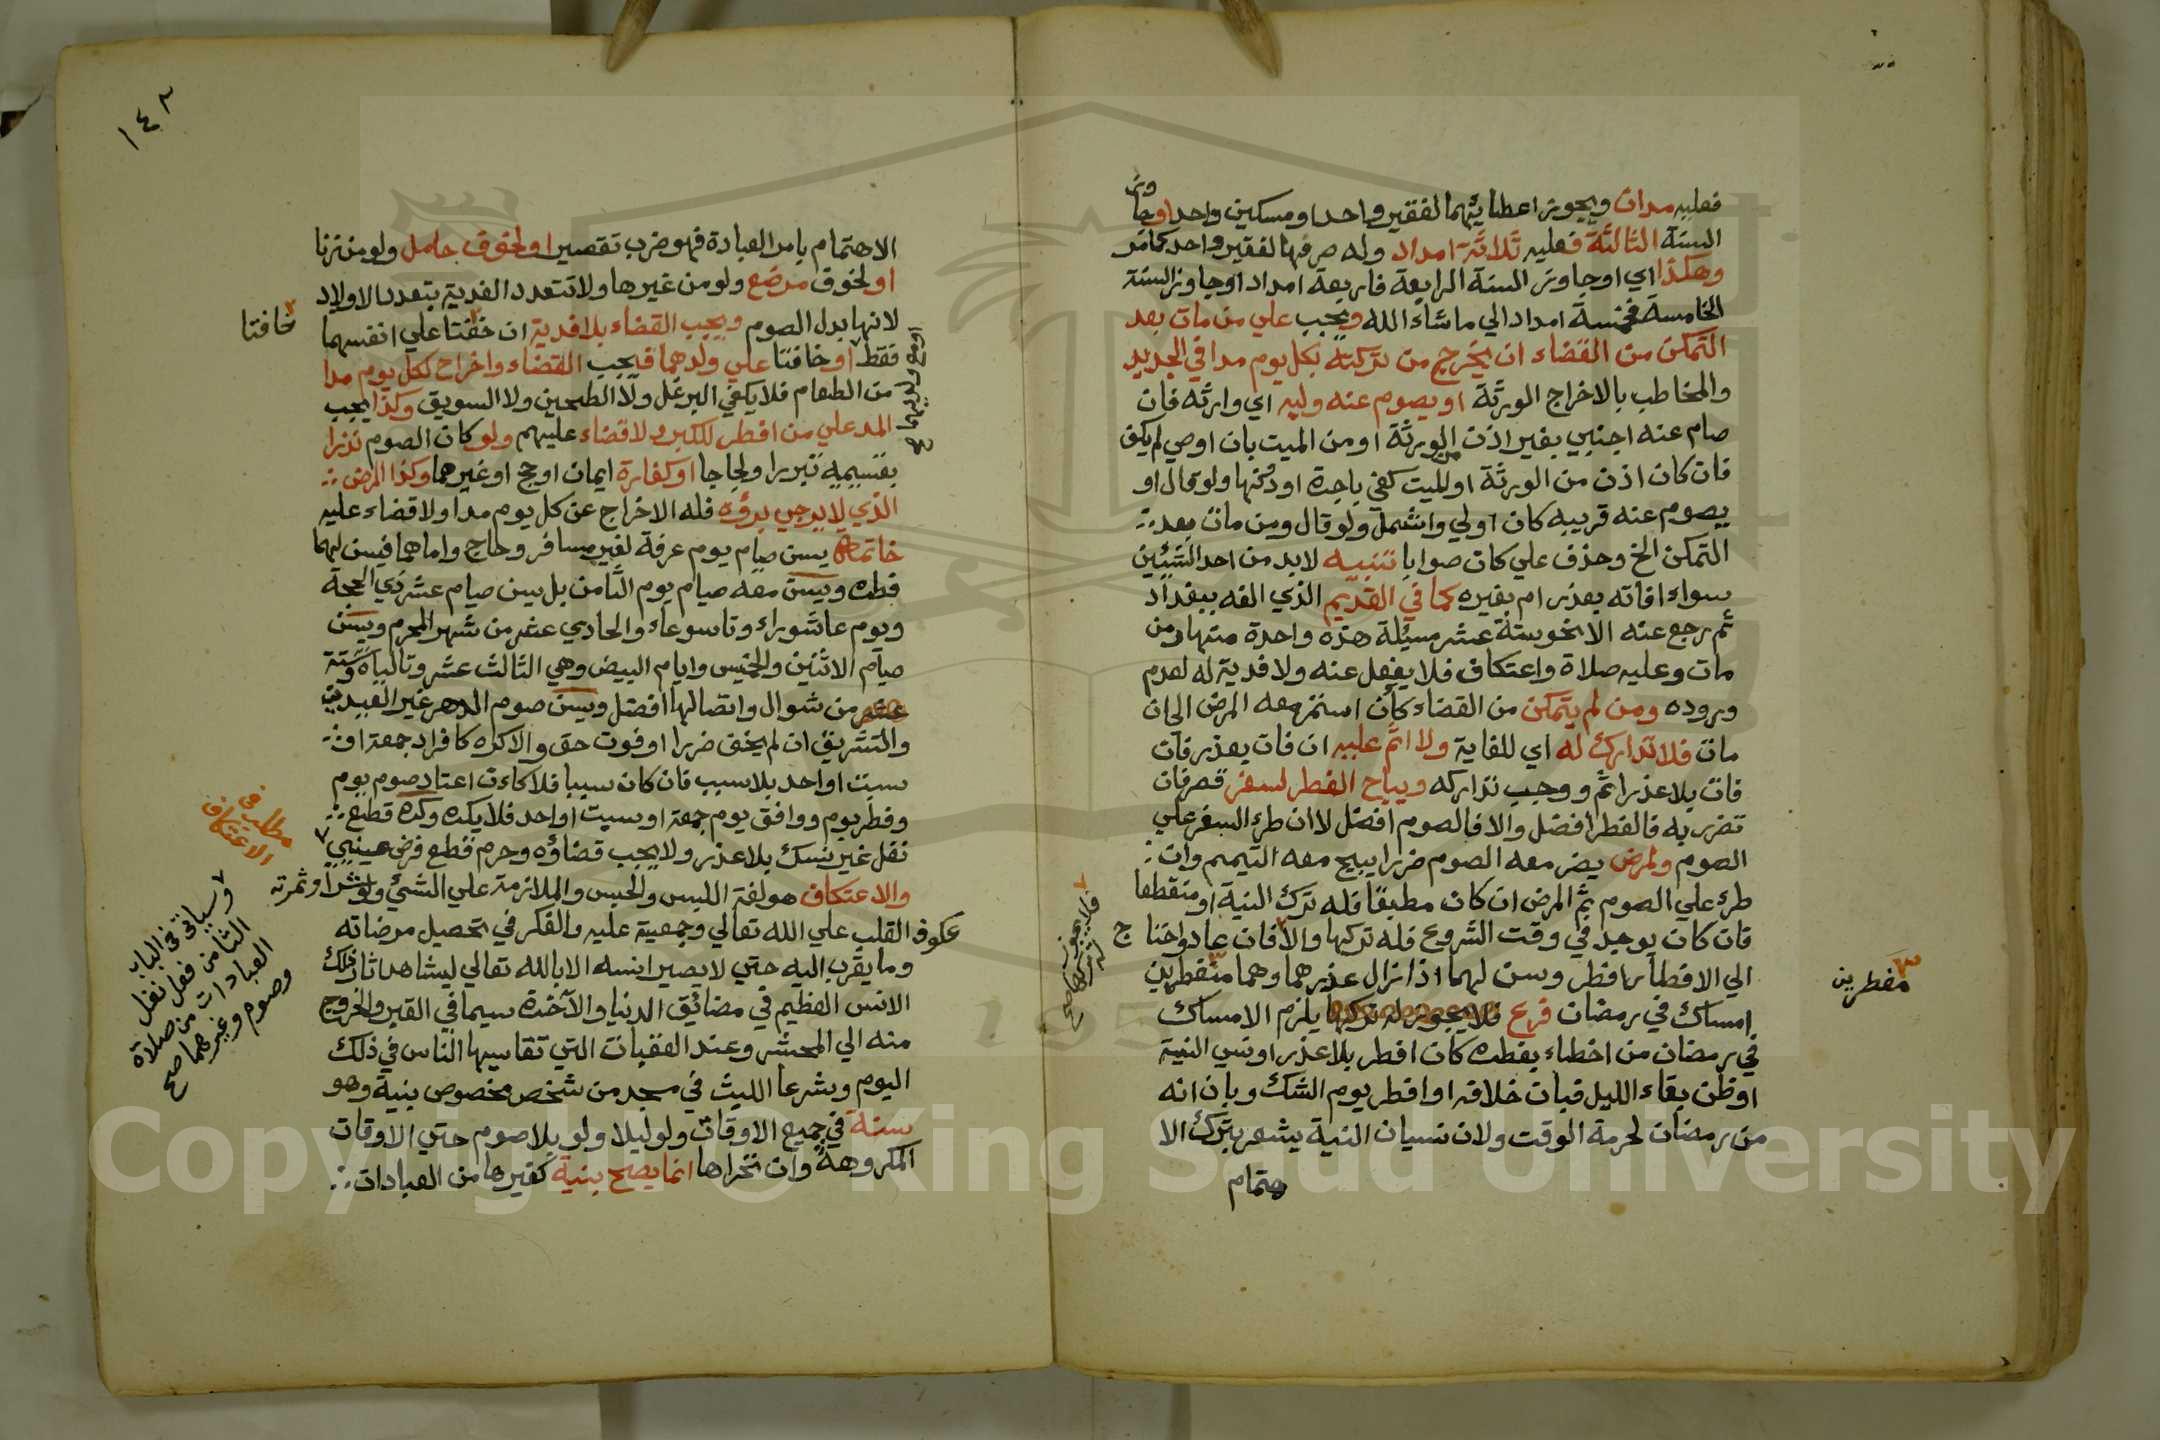 فعليه مدان ويجوز اعطائهما لفقير واحد او مسكين واحد او جاوز
السنة الثالثة فعليه ثلاثة امداد وله صرفها لفقير واحد كما مر
وهكذا اي او جاوز السنة الرابعة فاربعة امداد او جاوز السنة
الخامسة فخمسة امداد الي ما شاء الله ويجب علي من مات بعد
التمكن من القضاء ان يخرج من تركته لكل يوم مدا في الجديد
والمخاطب بالاخراج الورثة او يصوم عنه وليه اي وارثه فان
صام عنه اجنبي بغير اذن الورثة او من الميت بان اوصي لم يكف
فان كان اذن من الورثة او للميت كفي باجرة او دونها ولو قال او
يصوم عنه قريبه كان اولي واشمل ولو قال ومن مات بعد
التمكن الخ وحذف علي كان صوابا تنبيه لابد من احد الشيئين
سواء افاته بعذر ام بغيره كما في القديم الذي الفه ببغداد
ثم رجع عنه الا نحو ستة عشر مسئلة هذه واحدة منها ومن
مات وعليه صلاة واعتكاف فلا يفعل عنه ولا فدية له لعدم
وروده ومن لم يتمكن من القضاء كأن استمر معه المرض الي ان
مات فلا تدارك له اي للفاية ولا اثم عليه ان فات بعذر فان
فات بلا عذر اثم ووجب تداركه ويباح الفطر لسفر قصر فان
تضرر به فالفطر افضل والا فالصوم افضل لا ان طرء السفر علي
الصوم ولمرض يضر معه الصوم ضررا يبيح معه التيمم وان
طرء علي الصوم ثم المرض ان كان مطبقا فله ترك النية او متقطعا
فان كان يوجد في وقت الشروع فله تركها والا فان عاد واحتاج
الي الافطار افطر وسن لهما اذا زال عذرهما وهما مفطرين
امساك في رمضان فرع يلزم الامساك
في رمضان من اخطاء بفطره كان افطر بلا عذر او نسي النية
او ظن بقاء الليل فبان خلافه او افطر يوم الشك وبان انه
من رمضان لحرمة الوقت ولان نسيان النية يشعر بترك الا
هتمام
فلا يجوز له تركها صح
٣ مفطرين
١٤٨
الاهتمام بامر العبادة فهو ضرب تقصير او لخوف حامل ولو من زنا
او لخوف مرضع ولو من غيرها ولا تتعدد الفدية بتعدد الاولاد
لانها بدل الصوم ويجب القضاء بلا فدية ان خفتا علي انفسهما
فقط او خافتا علي ولدهما فيجب القضاء واخراج لكل يوم مدا
من الطعام فلا يكفي البرغل ولا الطحين ولا السويق وكذا يجب
المد علي من افطر لكبر ولا قضاء عليهم ولو كان الصوم نذرا
بقسيميه تبررا ولجاجا او كفارة ايمان او حج او غيرهما وكذا المرض
الذي لا يرجي برؤه فله الاخراج عن كل يوم مدا ولا قضاء عليه
خاتمة يسن صيام يوم عرفة لغير مسافر وحاج واما هما فيسن لهما
فطره ويسن معه صيام يوم الثامن بل يسن صيام عشر ذي الحجة
ويوم عاشوراء وتاسوعاء والحادي عشر من شهر المحرم ويسن
صيام الاثنين والخميس وايام البيض وهي الثالث عشر وتالياه وستة
من شوال واتصالها افضل ويسن صوم الدهر غير العيدين
والتشريق ان لم يخف ضررا او فوت حق والا كره كافراد جمعة او
سبت او احد بلا سبب فان كان سببا فلا كان اعتاد صوم يوم
وفطر يوم ووافق يوم جمعة او سبت او احد فلا يكره وكره قطع
نفل غير نسك بلا عذر ولا يجب قضاؤه وحرم قطع فرض عيني
والاعتكاف هو لغة اللبس والحبس والملازمة علي الشئ ولو شرا وثمرته
عكوف القلب علي الله تعالي وجمعيته عليه والفكر في تحصيل مرضاته
وما يقرب اليه حتي لا يصير انسه الا بالله تعالي ليشاهد اثار ذلك
الانس العظيم في مضائق الدنيا والآخرة سيما في القبر والخروج
منه الي المحشر وعند العقبات التي تقاسيها الناس في ذلك
اليوم وشرعا اللبث في مسجد من شخص مخصوص بنية وهو
سنة في جميع الاوقات ولو ليلا ولو بلا صوم حتي الاوقات
المكروهة وان تحراها انما يصح بنية كغيرها من العبادات
٣ خافتا
مطلب في الاعتكاف
وسياتي في الباب
الثامن فعل نفل
العبادات من صلاة
وصوم وغيرهما صح
Copyright © King Saud University